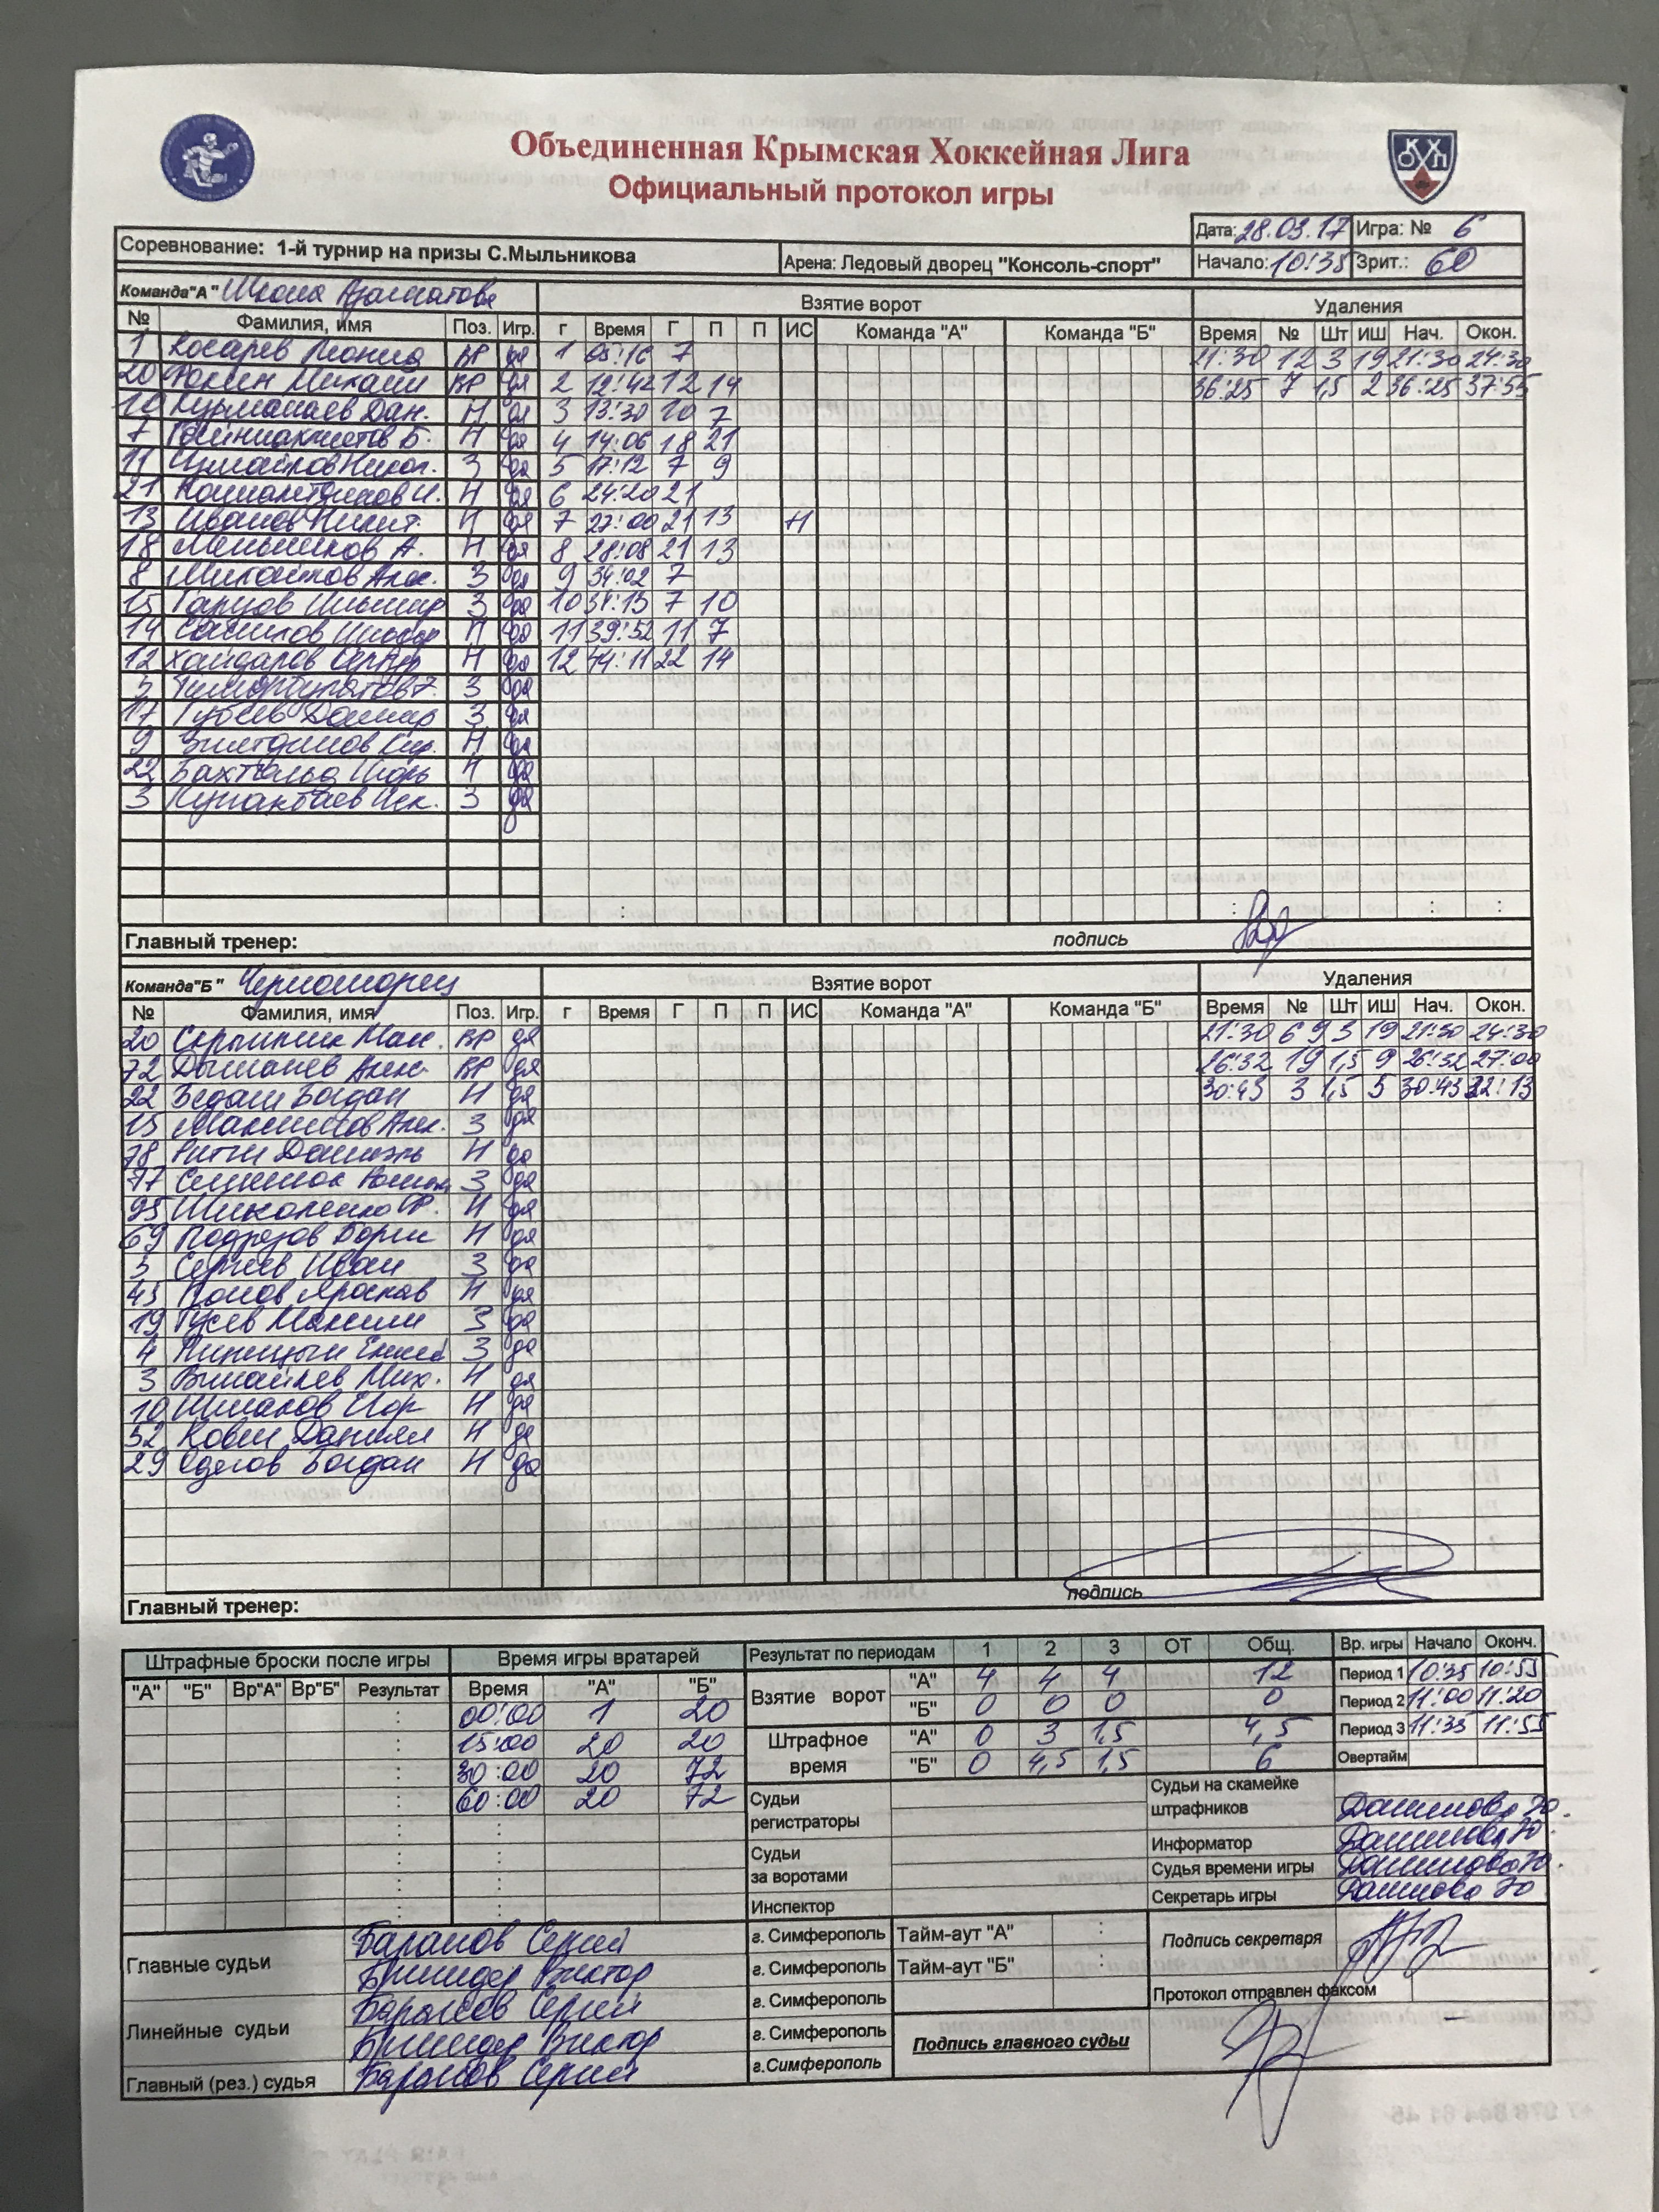 Объединенная Крымская Хоккейная Лига
ОКХЛ
Официальный протокол игры
Дата: 28.03.17 Игра: № 6
Соревнование: 1-й турнир на призы С.Мыльникова Арена: Ледовый дворец "Консоль-спорт" Начало: 10:35 Зрит.: 60
Команда"А" Школа Взятие ворот Удаления
№ Фамилия, имя Поз. Игр. г Время Г П П ИС Команда "А" Команда "Б" Время № Шт ИШ Нач. Окон.
1 Косарев Леонид ВР да 1 05:16 7 21:30 12 3 19 21:30 24:30
20 Михаил ВР да 2 12:42 12 14 36:25 7 1,5 2 36:25 37:55
10 Дан. Н да 3 13:30 10 7
7 Б. Н да 4 14:06 18 21
11 Измайлов Никол. З да 5 17:12 7 9
21 Н да 6 24:20 21
13 Иванов Никит. Н да 7 27:00 21 13 +1
18 Меньшиков А. Н да 8 28:08 21 13
8 Михайлов Алек. З да 9 34:02 7
15 Гарипов Ильшар З да 10 34:13 7 10
14 Н да 11 39:52 11 7
12 Хайдаров Н да 12 44:11 22 14
5 З да
17 Губеев Данияр З да
9 Кир. Н да
22 Бахтгольд Игорь Н да
3 Иск. З да
Главный тренер: подпись
Команда"Б" Черноморец Взятие ворот Удаления
№ Фамилия, имя Поз. Игр. г Время Г П П ИС Команда "А" Команда "Б" Время № Шт ИШ Нач. Окон.
20 Скрыпник Мак. ВР да 21:30 69 3 19 21:30 24:30
72 Дыманев Алек. ВР да 26:32 19 1,5 9 26:32 27:00
22 Бедаш Богдан Н да 30:43 3 1,5 5 30:43 32:13
15 Максимов Алек. З да
78 Даниэль Н да
77 З да
95 Шиколенко Р. Н да
69 Подрезов Борис Н да
5 Сергеев Иван З да
43 Попов Ярослав Н да
19 Гусев Максим З да
4 Синицын З да
3 Мих. Н да
10 Шмаков Егор Н да
52 Ковш Даниил Н да
29 Богдан Н да
Главный тренер: подпись
Штрафные броски после игры Время игры вратарей Результат по периодам 1 2 3 ОТ Общ. Вр. игры Начало Оконч.
"А" "Б" Вр"А" Вр"Б" Результат Время "А" "Б" Взятие ворот "А" 4 4 4 12 Период 1 10:35 10:55
00:00 1 20 "Б" 0 0 0 0 Период 2 11:00 11:20
15:00 20 20 Штрафное время "А" 0 3 1,5 4,5 Период 3 11:35 11:55
30:00 20 72 "Б" 0 4,5 1,5 6 Овертайм
60:00 20 72 Судьи регистраторы Судьи на скамейке штрафников Данилова Ю.
Информатор Данилова Ю.
Судьи за воротами Судья времени игры Данилова Ю.
Инспектор Секретарь игры Данилова Ю
Главные судьи Баранов Сергей г. Симферополь Тайм-аут "А" : Подпись секретаря
Бриндер Виктор г. Симферополь Тайм-аут "Б" :
Линейные судьи Баранов Сергей г. Симферополь Протокол отправлен факсом
Бриндер Виктор г. Симферополь Подпись главного судьи
Главный (рез.) судья Баранов Сергей г.Симферополь